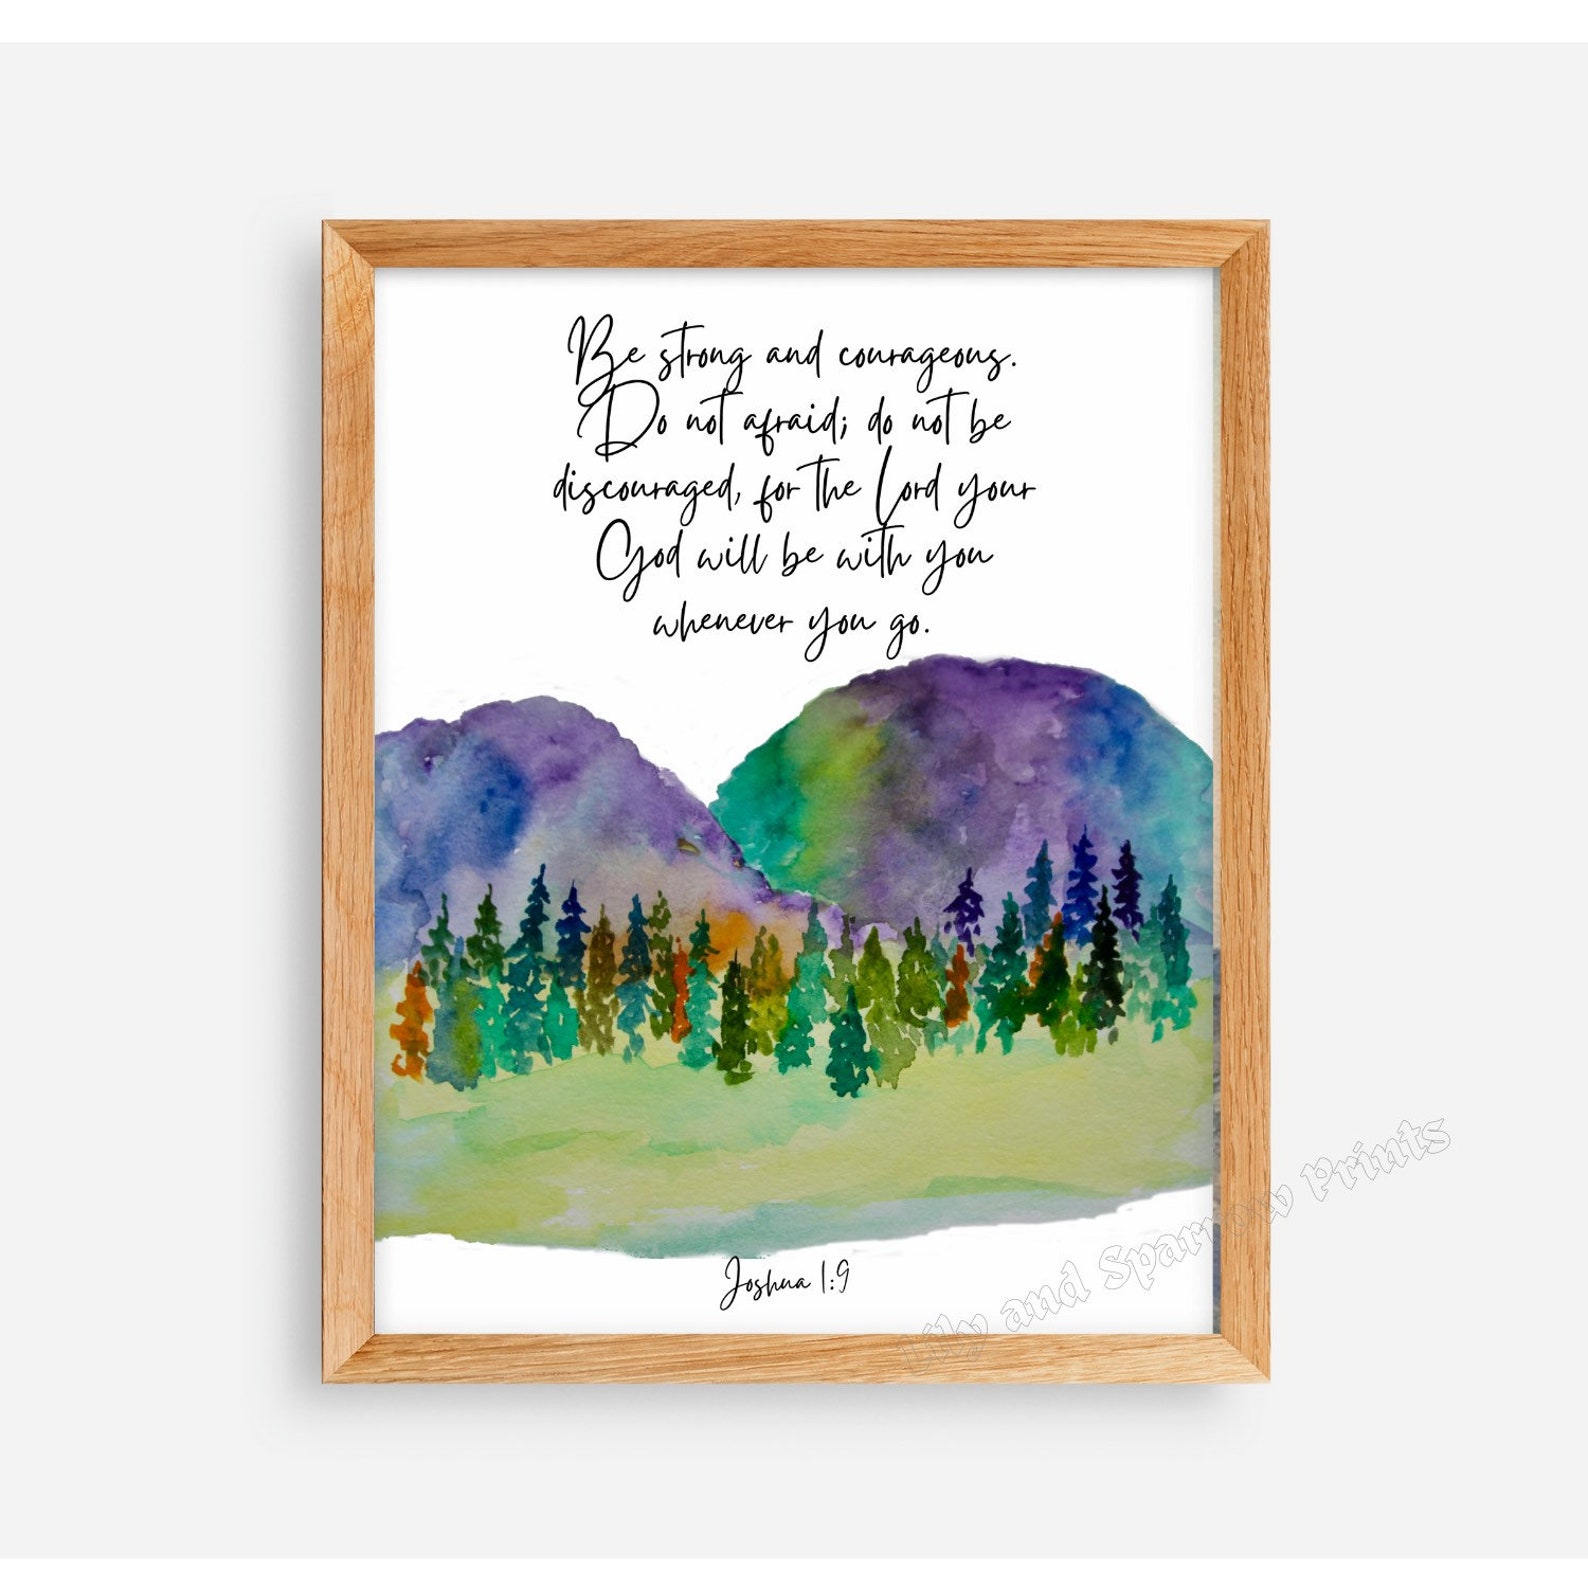 Be strong and courageous.
Do not afraid; do not be
discouraged, for the Lord your
God will be with you
whenever you go.
Joshua 1:9
Lily and Sparrow Prints